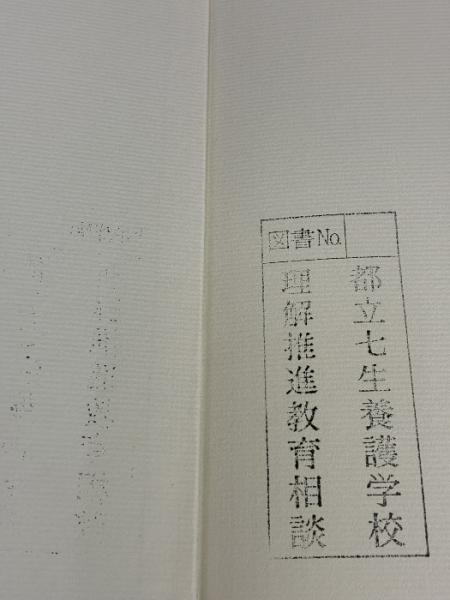 図書No.
都立七生養護学校
理解推進教育相談